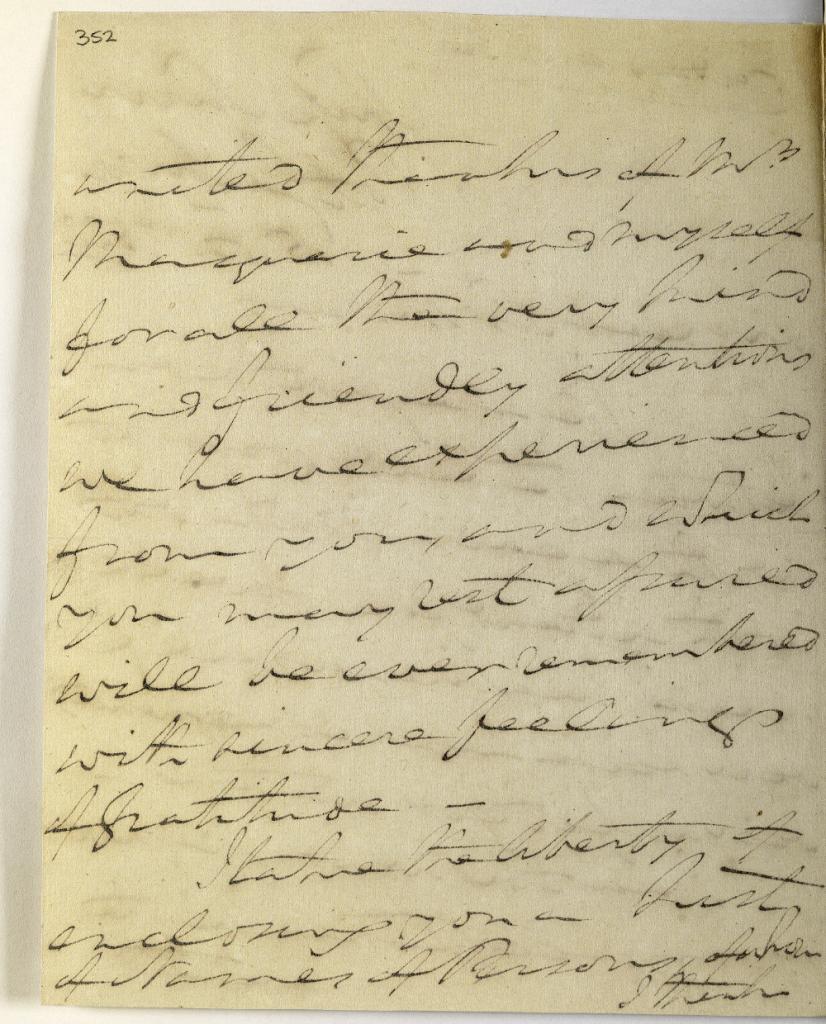 352
united Thanks of Mrs
Macquarie and myself
for all the very kind
and friendly attentions
we have experienced
from you, and which
you may rest assured
will be ever remembered
with sincere feelings
of gratitude —
I take the liberty of
enclosing you a List
of Names of Persons, of whom
I think